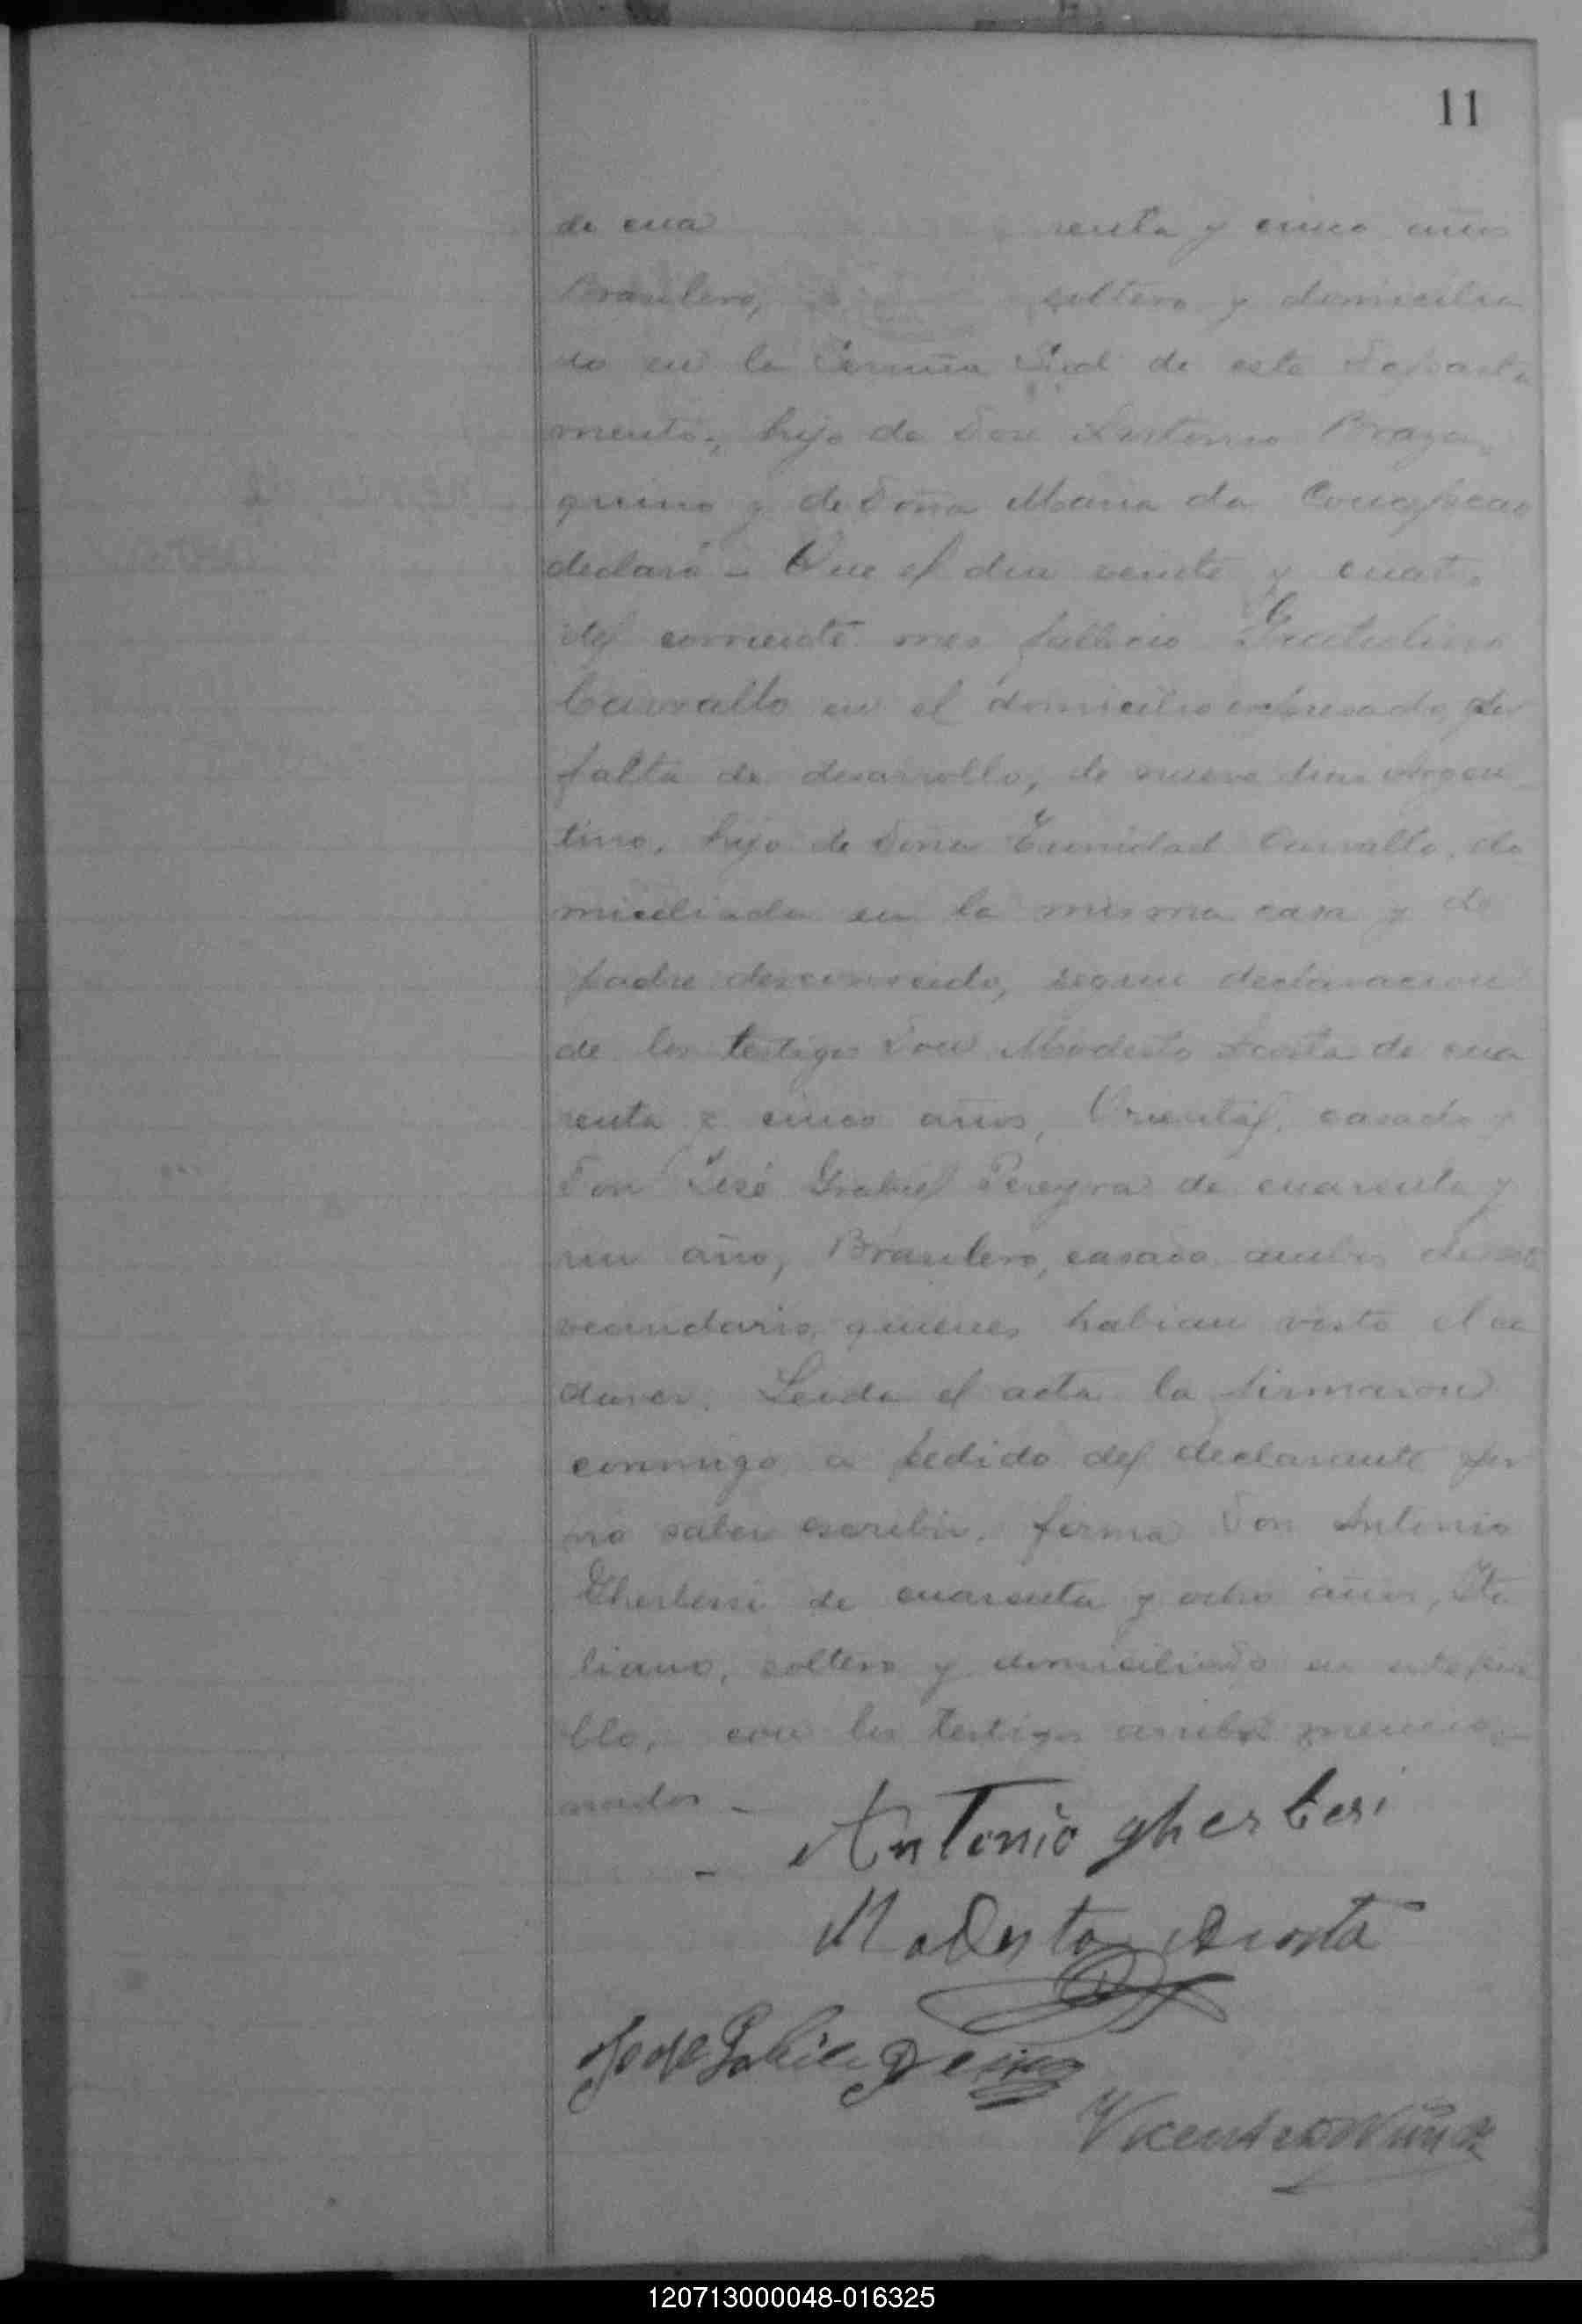 11
de cua renta y cinco años
Brasilero, soltero y domicilia
do en la Seccion Sud de este Departa
mento, hijo de Don Antonio Braga
y de Doña Maria da Conceicao
declaró - Que el dia veinte y cuatro
del corriente mes fallecio
Carvallo en el domicilio expresado, por
falta de desarrollo, de nueve dias Argen
tino, hijo de Doña Trinidad Carvallo, do
miciliada en la misma casa y de
padre desconocido, segun declaracion
de los testigos Don Modesto Acosta de cua
renta y cinco años, Oriental, casado y
Don José Grabiel Pereyra de cuarenta y
un año, Brasilero, casado ambos de este
vecindario, quienes habian visto el ca
daver. Leida el acta la firmaron
conmigo a pedido del declarante por
no saber escribir, firma Don Antonio
Gherbesi de cuarenta y ocho años, Ita
liano, soltero y domiciliado en este pue
blo, con los testigos arriba mencio
nados -
- Antonio gherbesi
Modesto Acosta
Jose
Vicente Nuñez
120713000048-016325